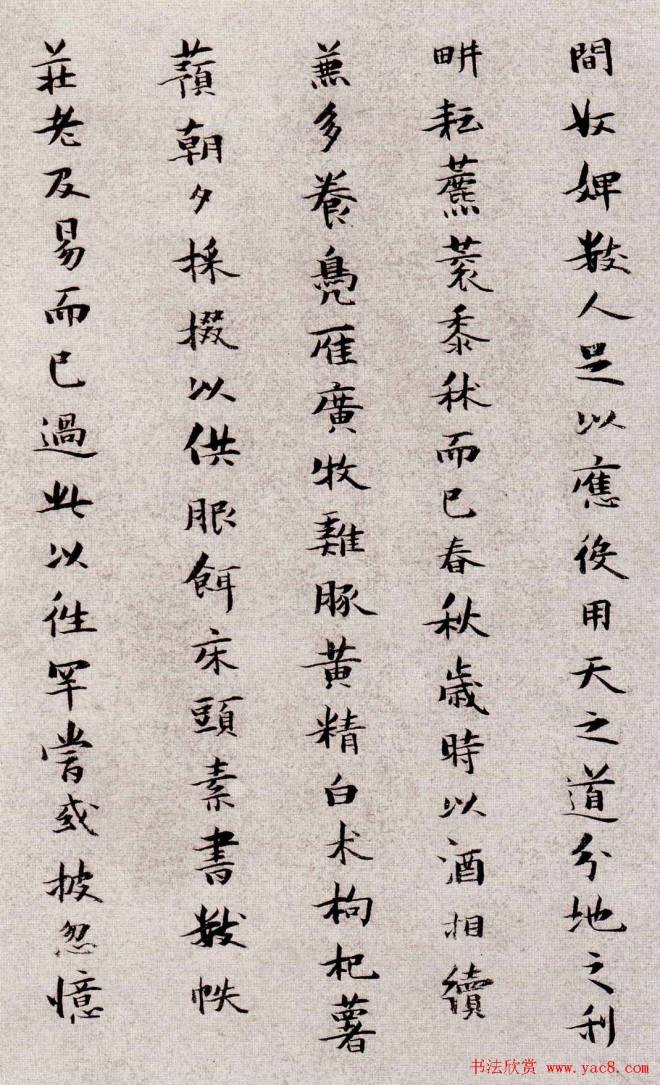 間奴婢數人足以應役用天之道分地之利
畊耘藨蓘黍秫而已春秋歲時以酒相續
兼多養鳧雁廣牧雞豚黃精白术枸杞薯
蕷朝夕採掇以供服餌床頭素書數帙
莊老及易而已過此以往罕嘗或披忽憶
书法欣赏 www.yac8.com